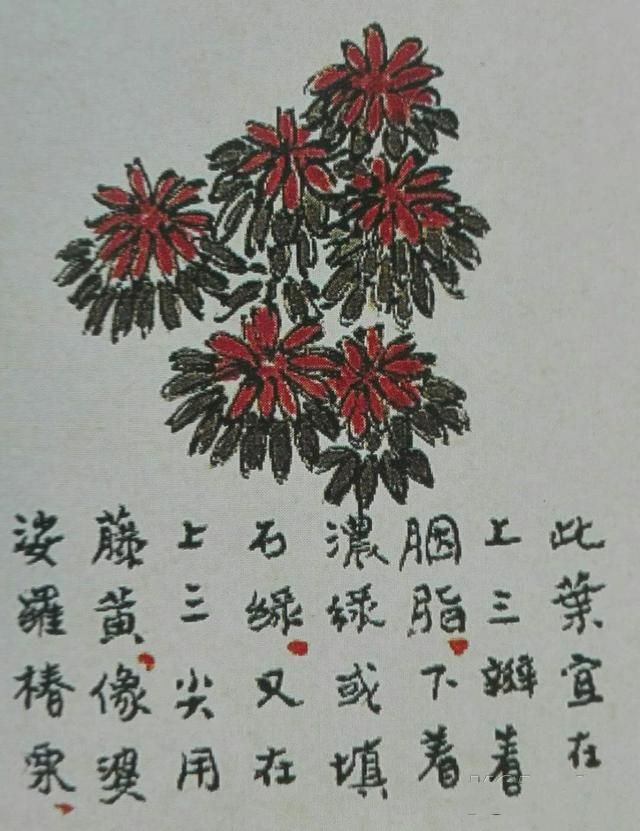 此葉宜在
上三瓣着
胭脂下着
濃綠或填
石綠又在
上三尖用
藤黃像婆
娑羅椿栗